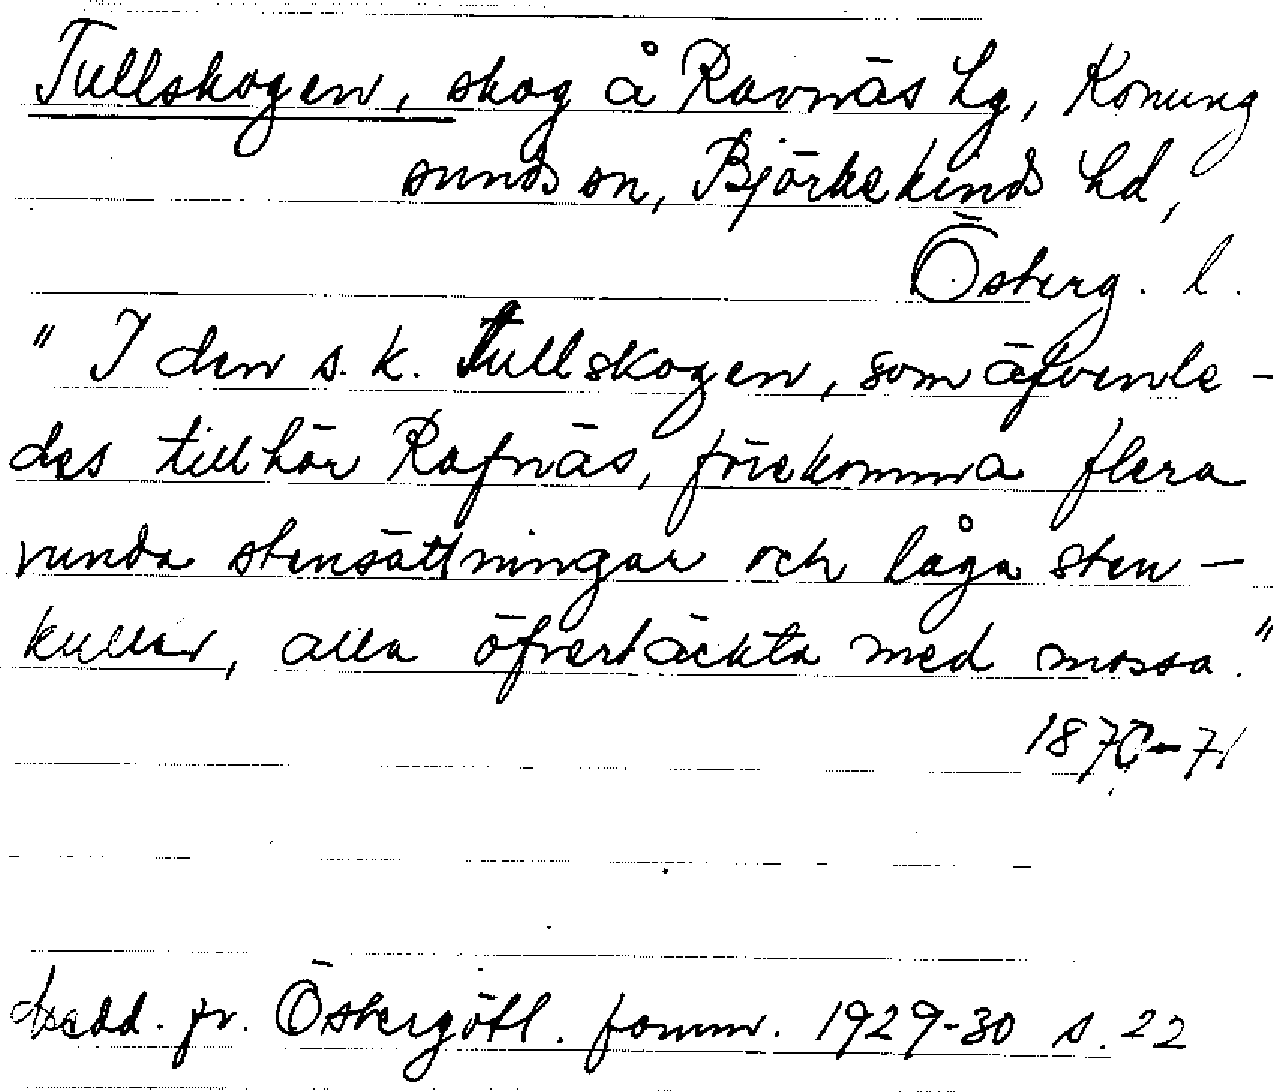 Tullskogen, skog å Ravnäs hg, Konung
sunds sn, Björkekinds hd,
Österg. l.
"I den s. k. Tullskogen, som äfvenle-
des tillhör Rafnäs, förekomma flera
runda stensättningar och låga sten-
kullar, alla öfvertäckta med mossa."
1870-71
Medd. fr. Östergötl. fornm. 1929-30 s. 22